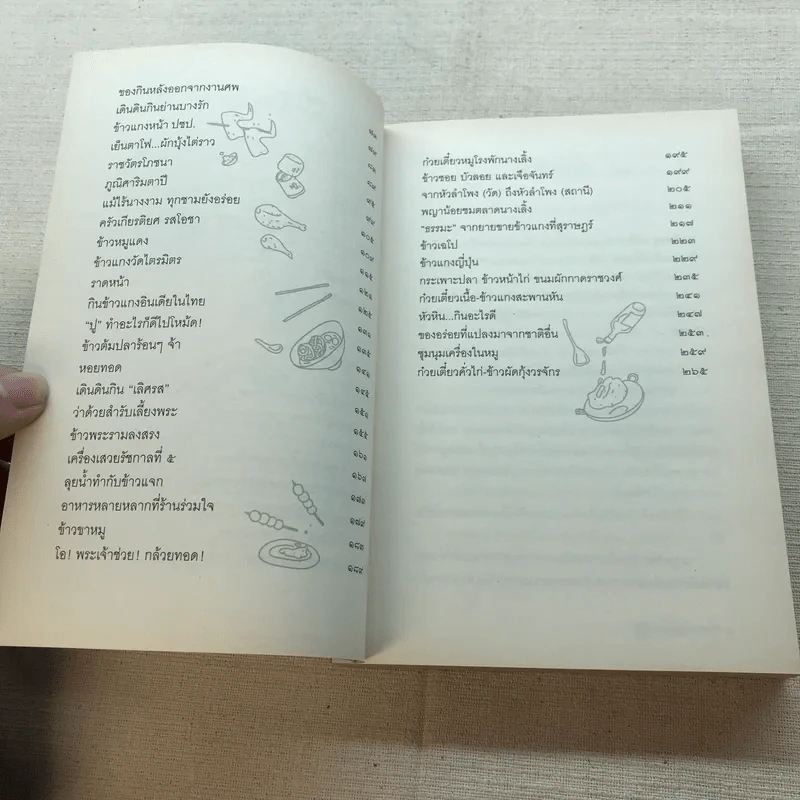 ของกินหลังออกจากงานศพ
เดินดินกินย่านบางรัก
ข้าวแกงหน้า ปชป.
เย็นตาโฟ...ผักบุ้งไต่ราว
ราชวัตรโภชนา
ภูณิศาริมตาปี
แม้ไร้นางงาม ทุกชามยังอร่อย ๙๕
ครัวเกียรติยศ รสโอชา ๙๙
ข้าวหมูแดง ๑๐๕
ข้าวแกงวัดไตรมิตร ๑๐๙
ราดหน้า ๑๑๕
กินข้าวแกงอินเดียในไทย ๑๒๑
"ปู" ทำอะไรก็ดีไปโหม้ด! ๑๓๑
ข้าวต้มปลาร้อนๆ จ้า ๑๓๕
หอยทอด ๑๔๑
เดินดินกิน "เลิศรส" ๑๔๕
ว่าด้วยสำรับเลี้ยงพระ ๑๕๑
ข้าวพระรามลงสรง ๑๕๕
เครื่องเสวยรัชกาลที่ ๕ ๑๖๑
ลุยน้ำทำกับข้าวแจก ๑๖๗
อาหารหลายหลากที่ร้านร่วมใจ ๑๗๓
ข้าวขาหมู ๑๗๙
โอ! พระเจ้าช่วย! กล้วยทอด! ๑๘๓
๑๘๙
ก๋วยเตี๋ยวหมูโรงพักนางเลิ้ง ๑๙๕
ข้าวซอย บัวลอย และเจือจันทร์ ๑๙๙
จากหัวลำโพง (วัด) ถึงหัวลำโพง (สถานี) ๒๐๕
พญาน้อยชมตลาดนางเลิ้ง ๒๑๑
"ธรรมะ" จากยายขายข้าวแกงที่สุราษฎร์ ๒๑๗
ข้าวเฉโป ๒๒๓
ข้าวแกงญี่ปุ่น ๒๒๙
กระเพาะปลา ข้าวหน้าไก่ ขนมผักกาดราชวงศ์ ๒๓๕
ก๋วยเตี๋ยวเนื้อ-ข้าวแกงสะพานหัน ๒๔๑
หัวหิน...กินอะไรดี ๒๔๗
ของอร่อยที่แปลงมาจากชาติอื่น ๒๕๓
ชุมนุมเครื่องในหมู ๒๕๙
ก๋วยเตี๋ยวคั่วไก่-ข้าวผัดกุ้งวรจักร ๒๖๕